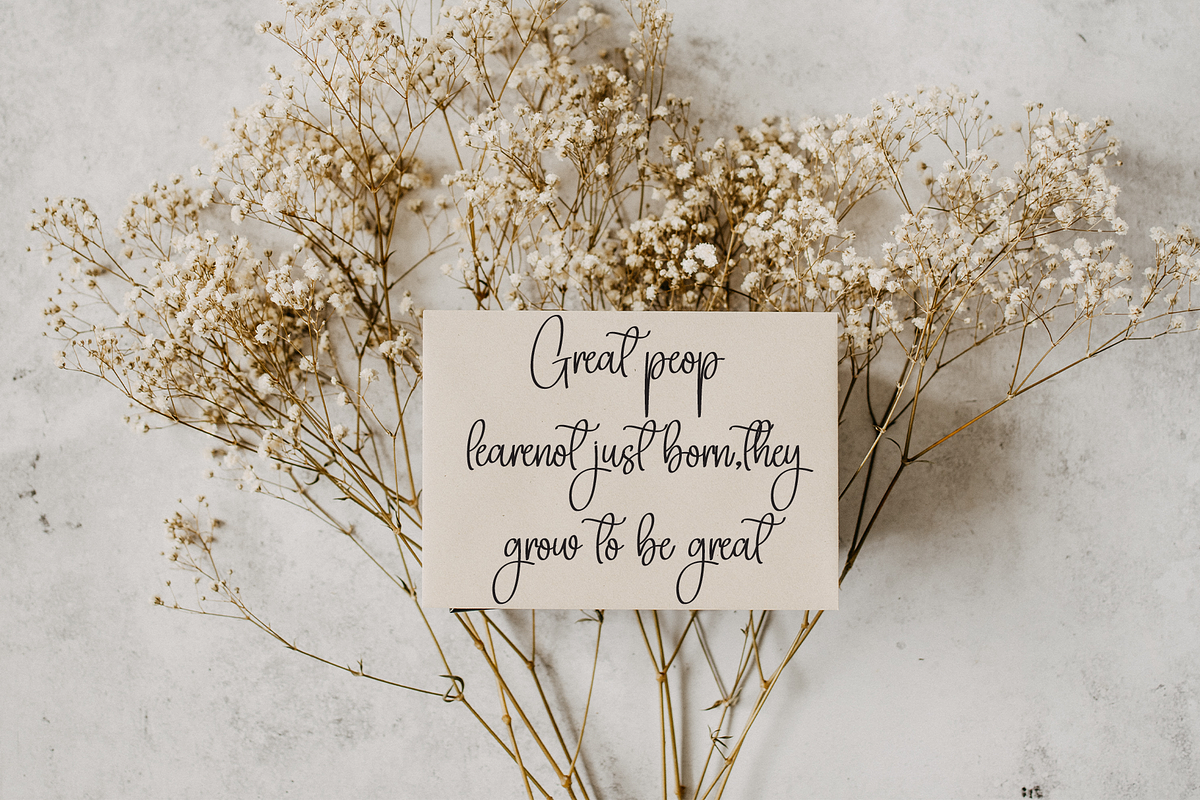 Great peop
learenot just born,they
grow to be great